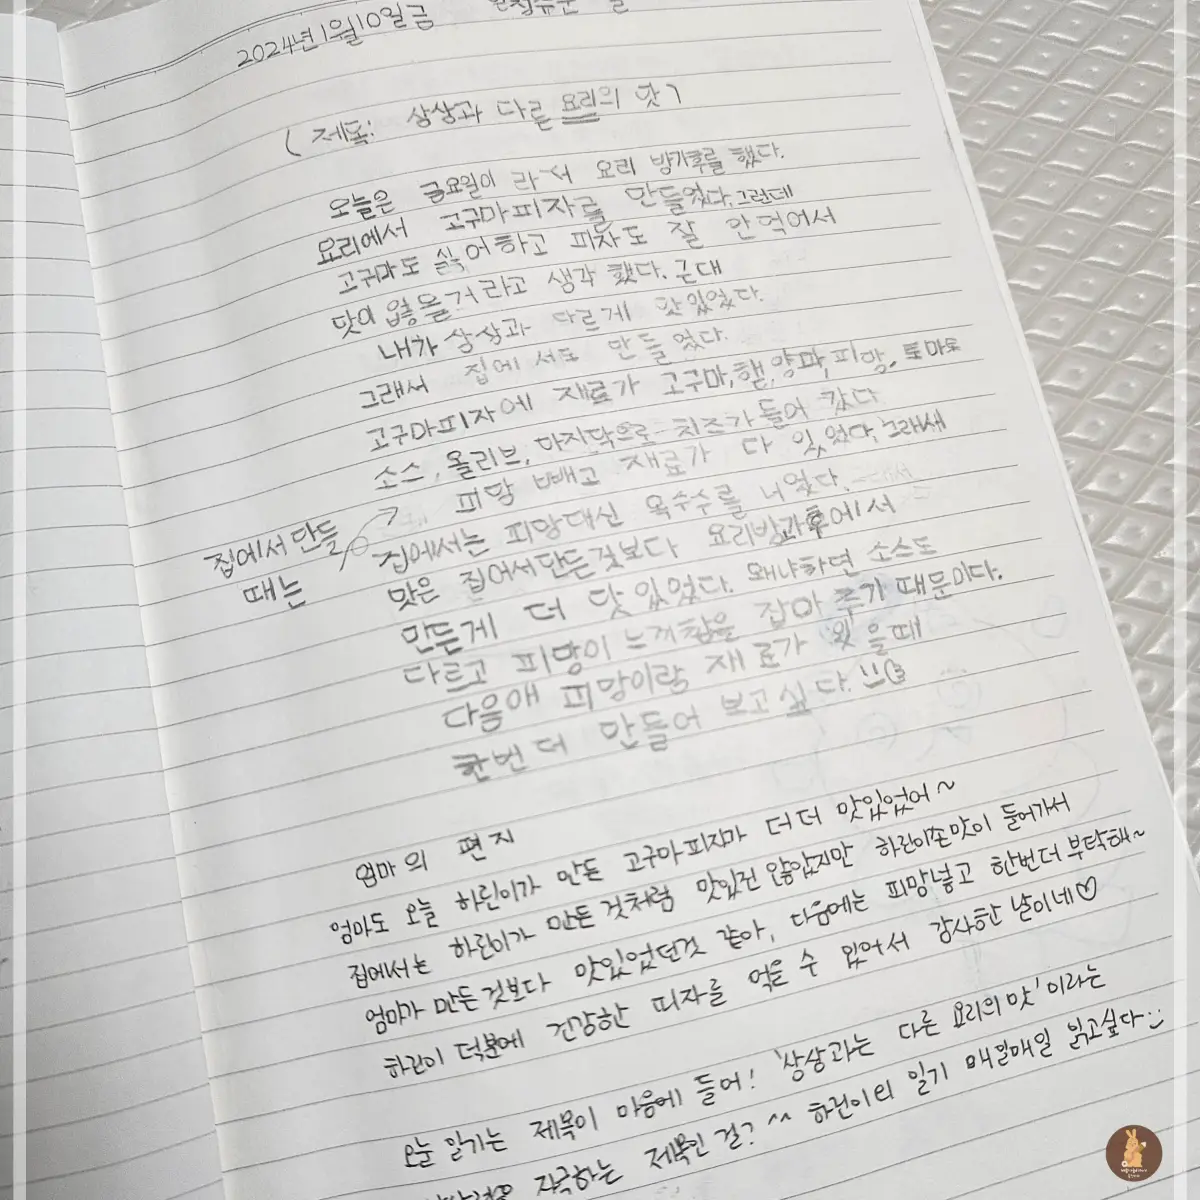 2024년 1월 10일 금
(제목: 상상과 다른 요리의 맛)
오늘은 금요일이라서 요리 방가후를 했다.
요리에서 고구마피자를 만들었다. 그런데
고구마도 싫어하고 피자도 잘 안먹어서
맛이 없을거라고 생각했다. 근대
내가 상상과 다르게 맛있었다.
그래서 집에서도 만들었다.
고구마피자에 재료가 고구마, 햄, 양파, 피망, 토마토
소스, 올리브, 마지막으로 치즈가 들어갔다
피망 빼고 재료가 다 있었다. 그래새
집에서 만들 때는
집에서는 피망대신 옥수수를 너었다.
맛은 집어서 만든것보다 요리방과후에서
만든게 더 맛있었다. 왜냐하면 소스도
다르고 피망이 느끼함을 잡아 주기 때문이다.
다음애 피망이랑 재료가 있을때
한번 더 만들어 보고싶다.
엄마의 편지
엄마도 오늘 하린이가 만든 고구마피자가 더더 맛있었어~
집에서는 하린이가 만든것처럼 맛있진 않았지만 하린이손맛이 들어가서
엄마가 만든것보다 맛있었던것 같아, 다음에는 피망넣고 한번더 부탁해~
하린이 덕분에 건강한 피자를 먹을 수 있어서 감사한 날이네♡
오늘 일기는 제목이 마음에 들어! '상상과는 다른 요리의 맛' 이라는
자극하는 제목인 걸? ^^ 하린이의 일기 매일매일 읽고싶다